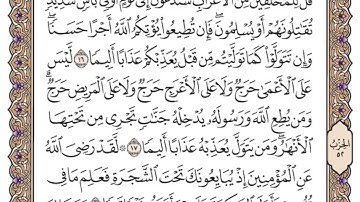 قُل لِّلْمُخَلَّفِينَ مِنَ الْأَعْرَابِ سَتُدْعَوْنَ إِلَىٰ قَوْمٍ أُو۟لِى بَأْسٍ شَدِيدٍ
تُقَٰتِلُونَهُمْ أَوْ يُسْلِمُونَ ۖ فَإِن تُطِيعُوا۟ يُؤْتِكُمُ ٱللَّهُ أَجْرًا حَسَنًا ۖ
وَإِن تَتَوَلَّوْا۟ كَمَا تَوَلَّيْتُم مِّن قَبْلُ يُعَذِّبْكُمْ عَذَابًا أَلِيمًا ١٦ لَّيْسَ
عَلَى ٱلْأَعْمَىٰ حَرَجٌ وَلَا عَلَى ٱلْأَعْرَجِ حَرَجٌ وَلَا عَلَى ٱلْمَرِيضِ حَرَجٌ ۗ
وَمَن يُطِعِ ٱللَّهَ وَرَسُولَهُۥ يُدْخِلْهُ جَنَّٰتٍ تَجْرِى مِن تَحْتِهَا
ٱلْأَنْهَٰرُ ۖ وَمَن يَتَوَلَّ يُعَذِّبْهُ عَذَابًا أَلِيمًا ١٧ ۞ لَّقَدْ رَضِىَ ٱللَّهُ
عَنِ ٱلْمُؤْمِنِينَ إِذْ يُبَايِعُونَكَ تَحْتَ ٱلشَّجَرَةِ فَعَلِمَ مَا فِى
الحزب
٥٢